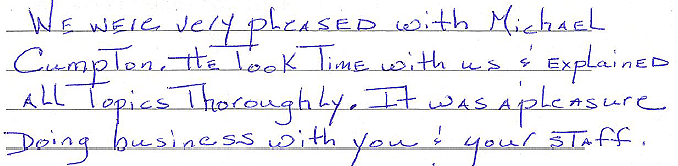 We were very pleased with Michael
Cumpton. He Took Time with us & Explained
All Topics Thoroughly. It was a pleasure
Doing business with you & your Staff.